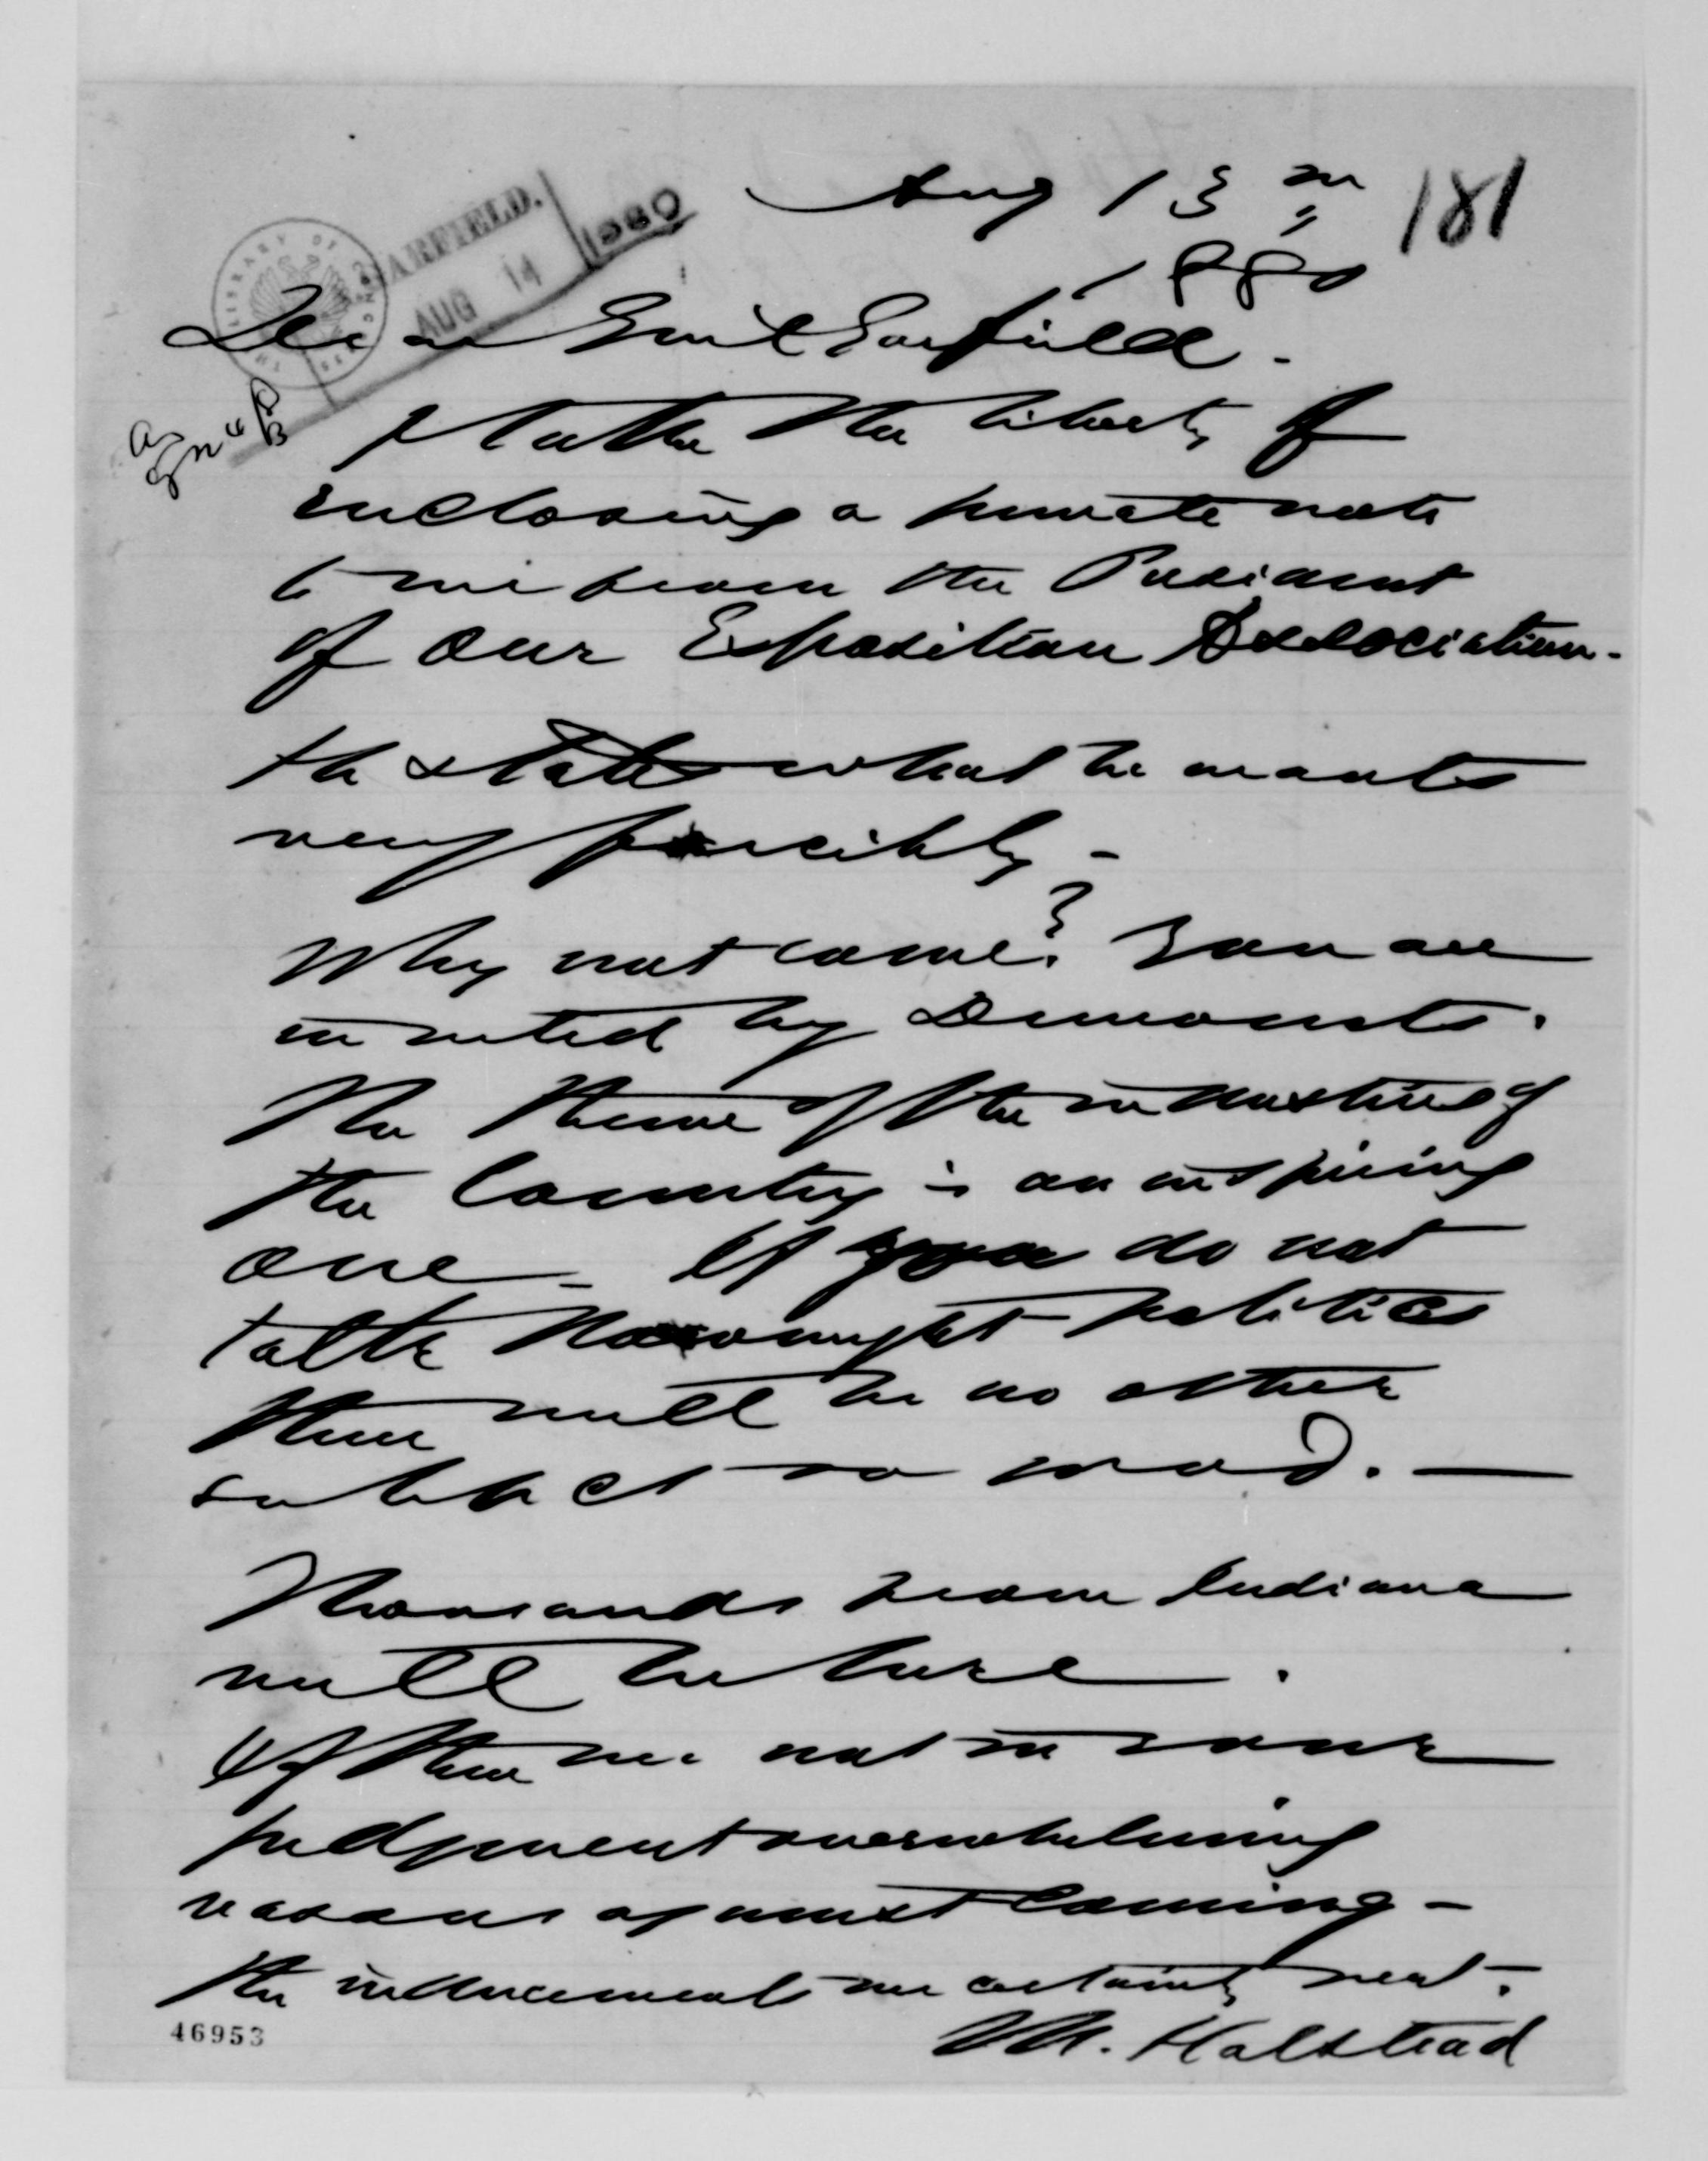 Aug 13th 181
1880
GARFIELD.
AUG 14 1880
THE LIBRARY OF CONGRESS
Dear Genl Garfield.
I take the liberty of
enclosing a private note
to me from the President
of our Exposition Association.
He states what he wants
very forcibly -
Why not come? You are
invited by Democrats.
The theme of the industries of
the Country is an inspiring
one - If you do not
talk thorough politics
there will be no other
subject so good. —
Thousands from Indiana
will be here.
If there are not in your
judgment overwhelming
reasons against coming -
the inducements are certainly real.
M. Halstead
46953